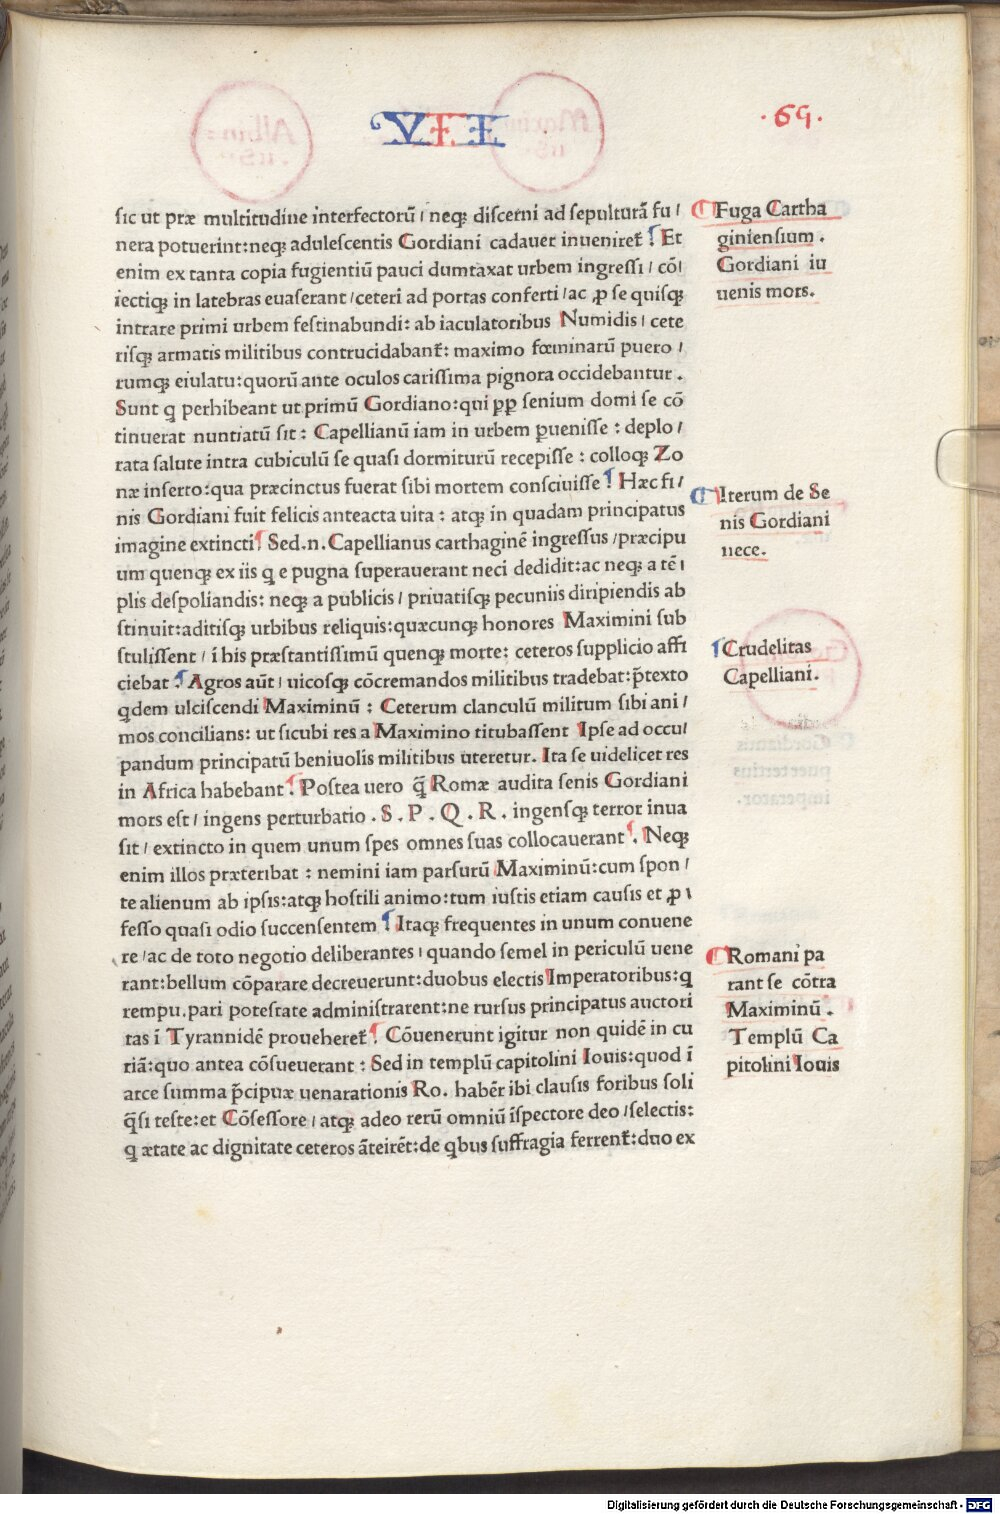 VII
.69.
sic ut præ multitudine interfectorū / neqꝫ discerni ad sepulturā fu /
nera potuerint: neqꝫ adulescentis Gordiani cadauer inueniret᷑ ¶ Et
enim ex tanta copia fugientiū pauci dumtaxat urbem ingressi / cō /
iectiqꝫ in latebras euaserant / ceteri ad portas conferti / ac ꝓ se quisqꝫ
intrare primi urbem festinabundi: ab iaculatoribus Numidis / cete
risqꝫ armatis militibus contrucidabant᷑: maximo fœminarū puero /
rumqꝫ eiulatu: quorū ante oculos carissima pignora occidebantur .
Sunt q perhibeant ut primū Gordiano: qui ꝓꝑ senium domi se cō
tinuerat nuntiatū sit : Capellianū iam in urbem ꝑuenisse : deplo /
rata salute intra cubiculū se quasi dormiturū recepisse : colloqꝫ Zo
næ inserto: qua præcinctus fuerat sibi mortem consciuisse ¶ Hæc fi /
nis Gordiani fuit felicis anteacta uita : atqꝫ in quadam principatus
imagine extincti ¶ Sed .n. Capellianus carthaginē ingressus / præcipu
um quenqꝫ ex iis q e pugna superauerant neci dedidit: ac neqꝫ a tē /
plis despoliandis: neqꝫ a publicis / priuatisqꝫ pecuniis diripiendis ab
stinuit: aditisqꝫ urbibus reliquis: quæcunqꝫ honores Maximini sub
stulissent / ī his præstantissimū quenqꝫ morte: ceteros supplicio affi
ciebat ¶ Agros aūt / uicosqꝫ cōcremandos militibus tradebat: p̄texto
qdem ulciscendi Maximinū : Ceterum clanculū militum sibi ani /
mos concilians: ut sicubi res a Maximino titubassent Ipse ad occu /
pandum principatū beniuolis militibus uteretur. Ita se uidelicet res
in Africa habebant ¶ Postea uero q̄ Romæ audita senis Gordiani
mors est / ingens perturbatio . S . P . Q . R . ingensqꝫ terror inua
sit / extincto in quem unum spes omnes suas collocauerant ¶ . Neqꝫ
enim illos præteribat : nemini iam parsurū Maximinū: cum spon /
te alienum ab ipsis: atqꝫ hostili animo: tum iustis etiam causis et ꝓ /
fesso quasi odio succensentem ¶ Itaqꝫ frequentes in unum conuene
re / ac de toto negotio deliberantes / quando semel in periculū uene
rant: bellum cōparare decreuerunt: duobus electis Imperatoribus: q
rempu. pari potestate administrarent: ne rursus principatus auctori
tas ī Tyrannidē proueheret᷑ ¶ Cōuenerunt igitur non quidē in cu
riā: quo antea cōsueuerant : Sed in templū capitolini Iouis: quod ī
arce summa p̄cipuæ uenarationis Ro. habēr ibi clausis foribus soli
q̄si teste: et Cōsessore / atqꝫ adeo rerū omniū īspectore deo / selectis:
q ætate ac dignitate ceteros āteirēt: de qbus suffragia ferrent᷑: duo ex
¶ Fuga Cartha
giniensium .
Gordiani iu
uenis mors.
¶ Iterum de Se
nis Gordiani
nece.
¶ Crudelitas
Capelliani.
¶ Romani pa
rant se cōtra
Maximinū .
Templū Ca
pitolini Iouis
Digitalisierung gefördert durch die Deutsche Forschungsgemeinschaft - DFG